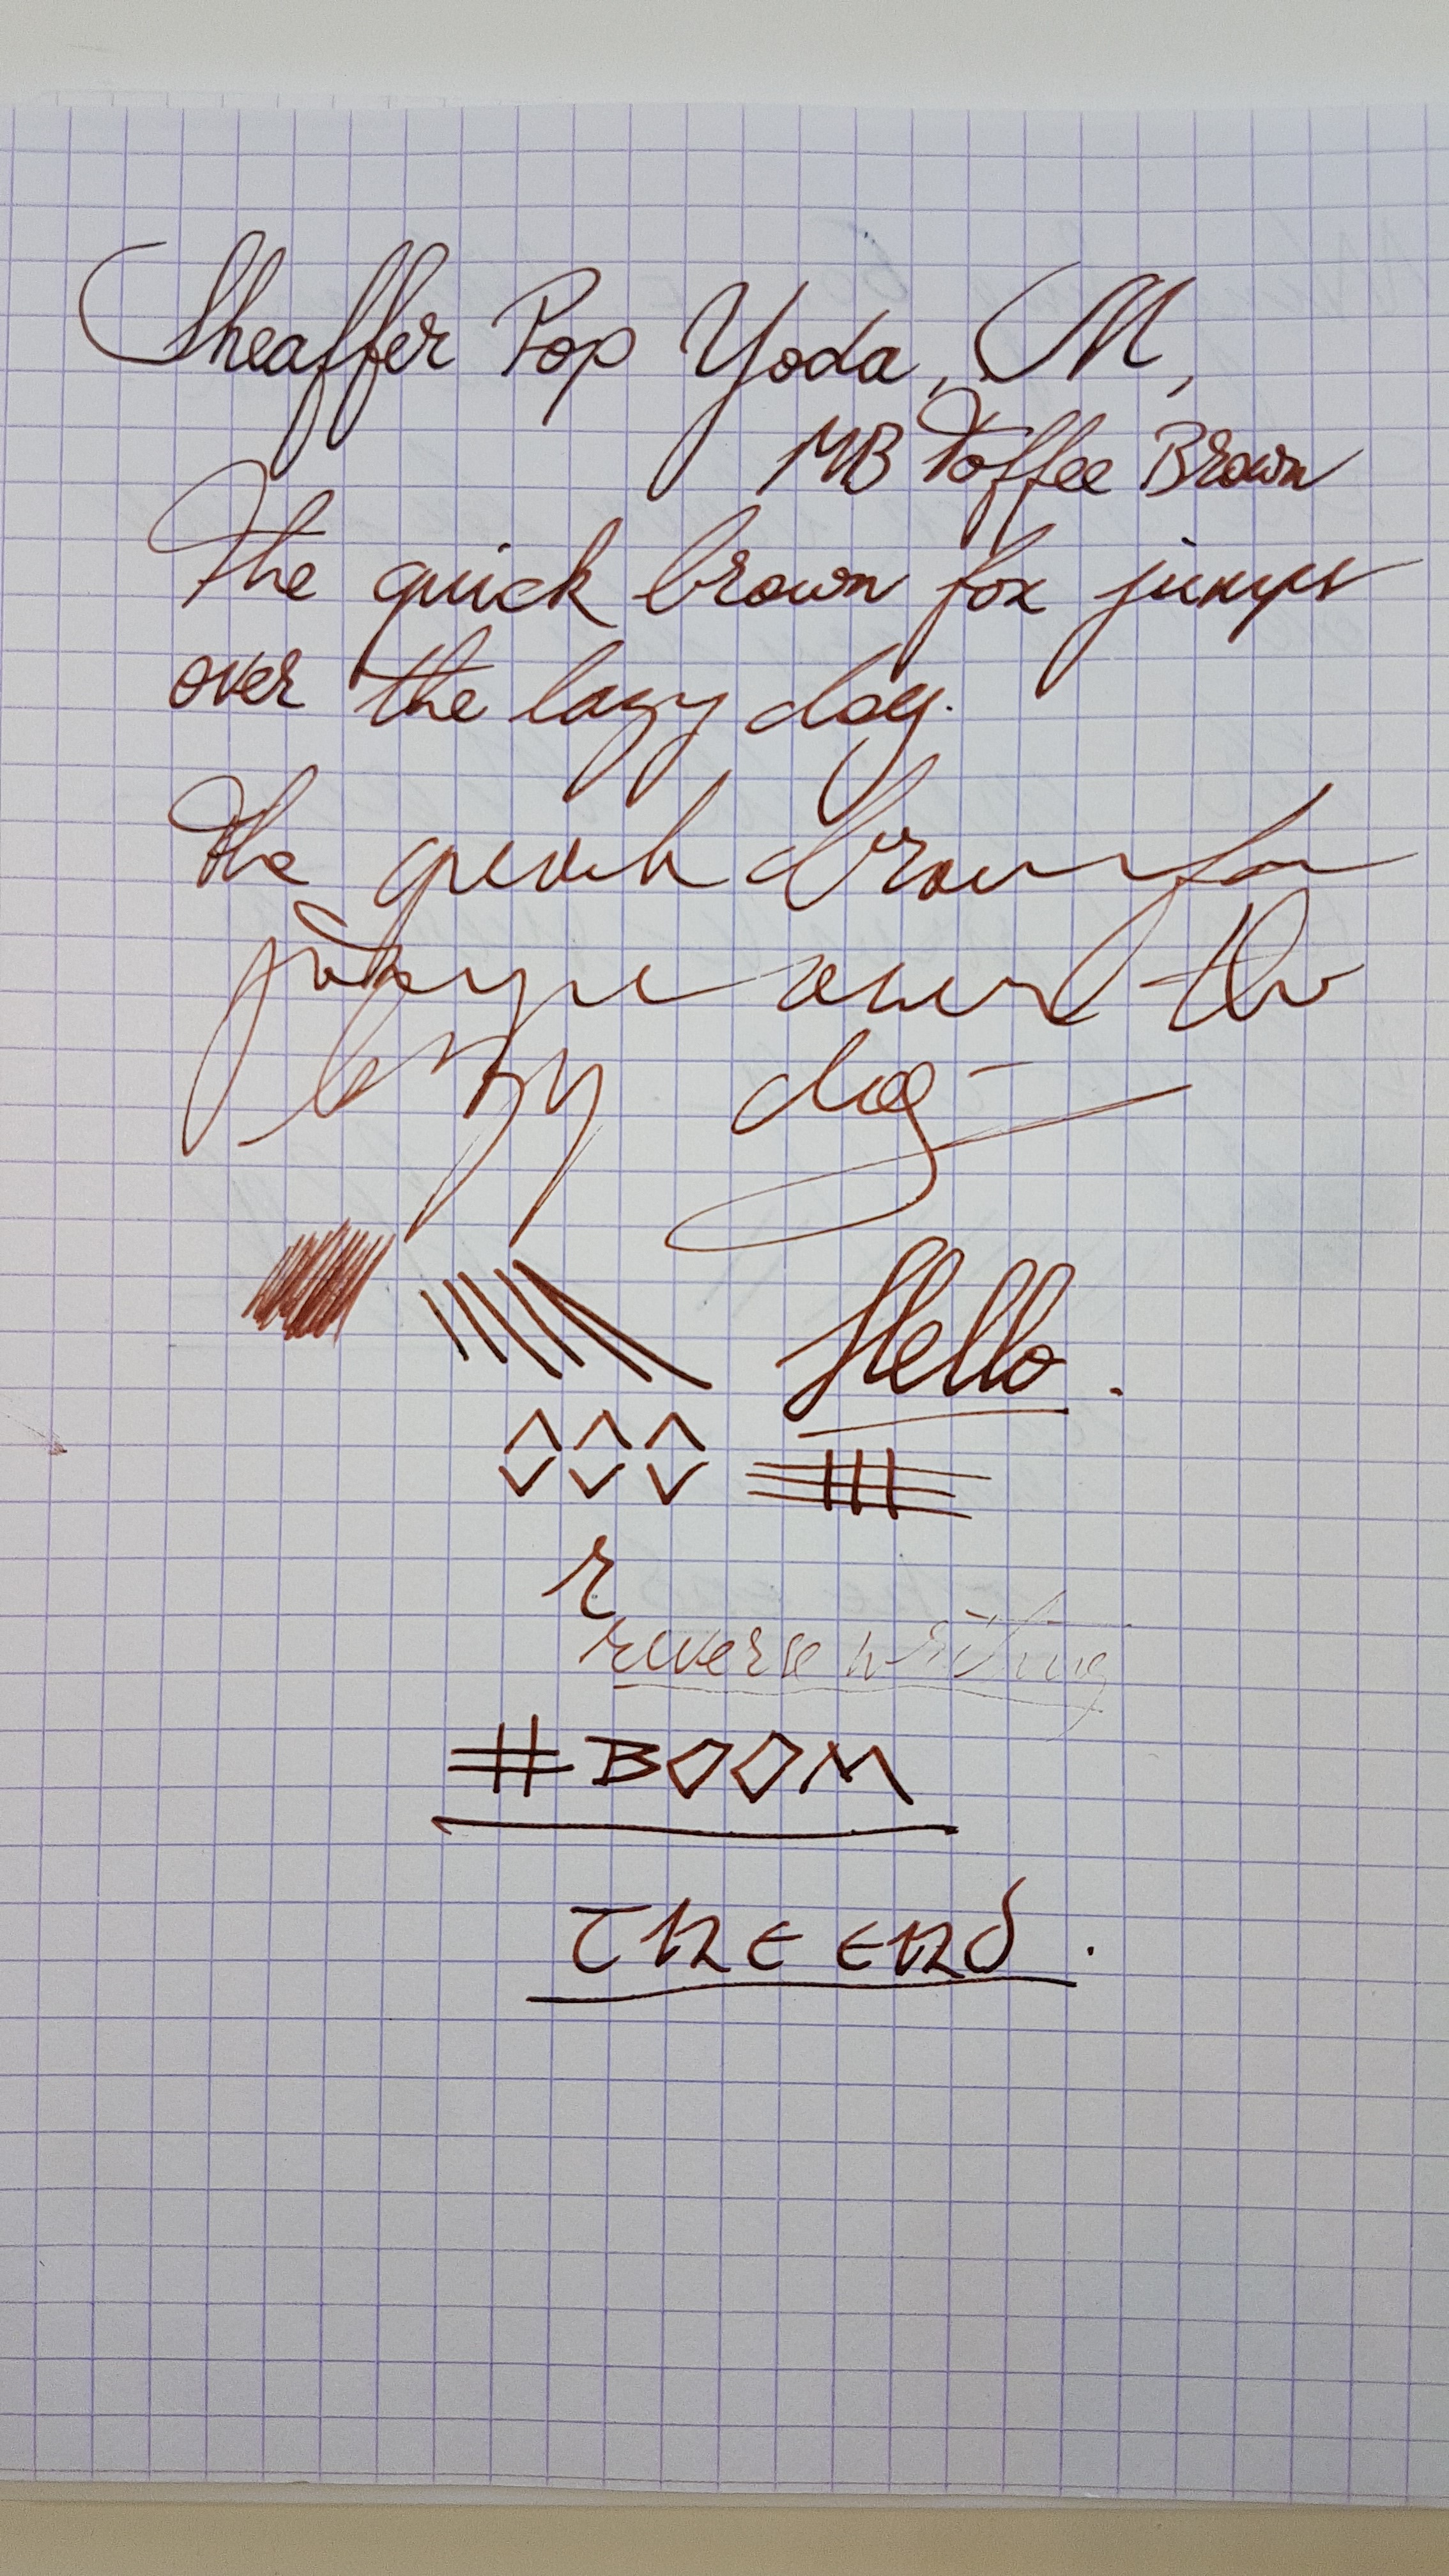 Sheaffer Pop Yoda, M,
MB Toffee Brown
The quick brown fox jumps
over the lazy dog.
The quick brown fox
jumps over the
lazy dog
Hello.
r
reverse writing
#BOOM
THE END.